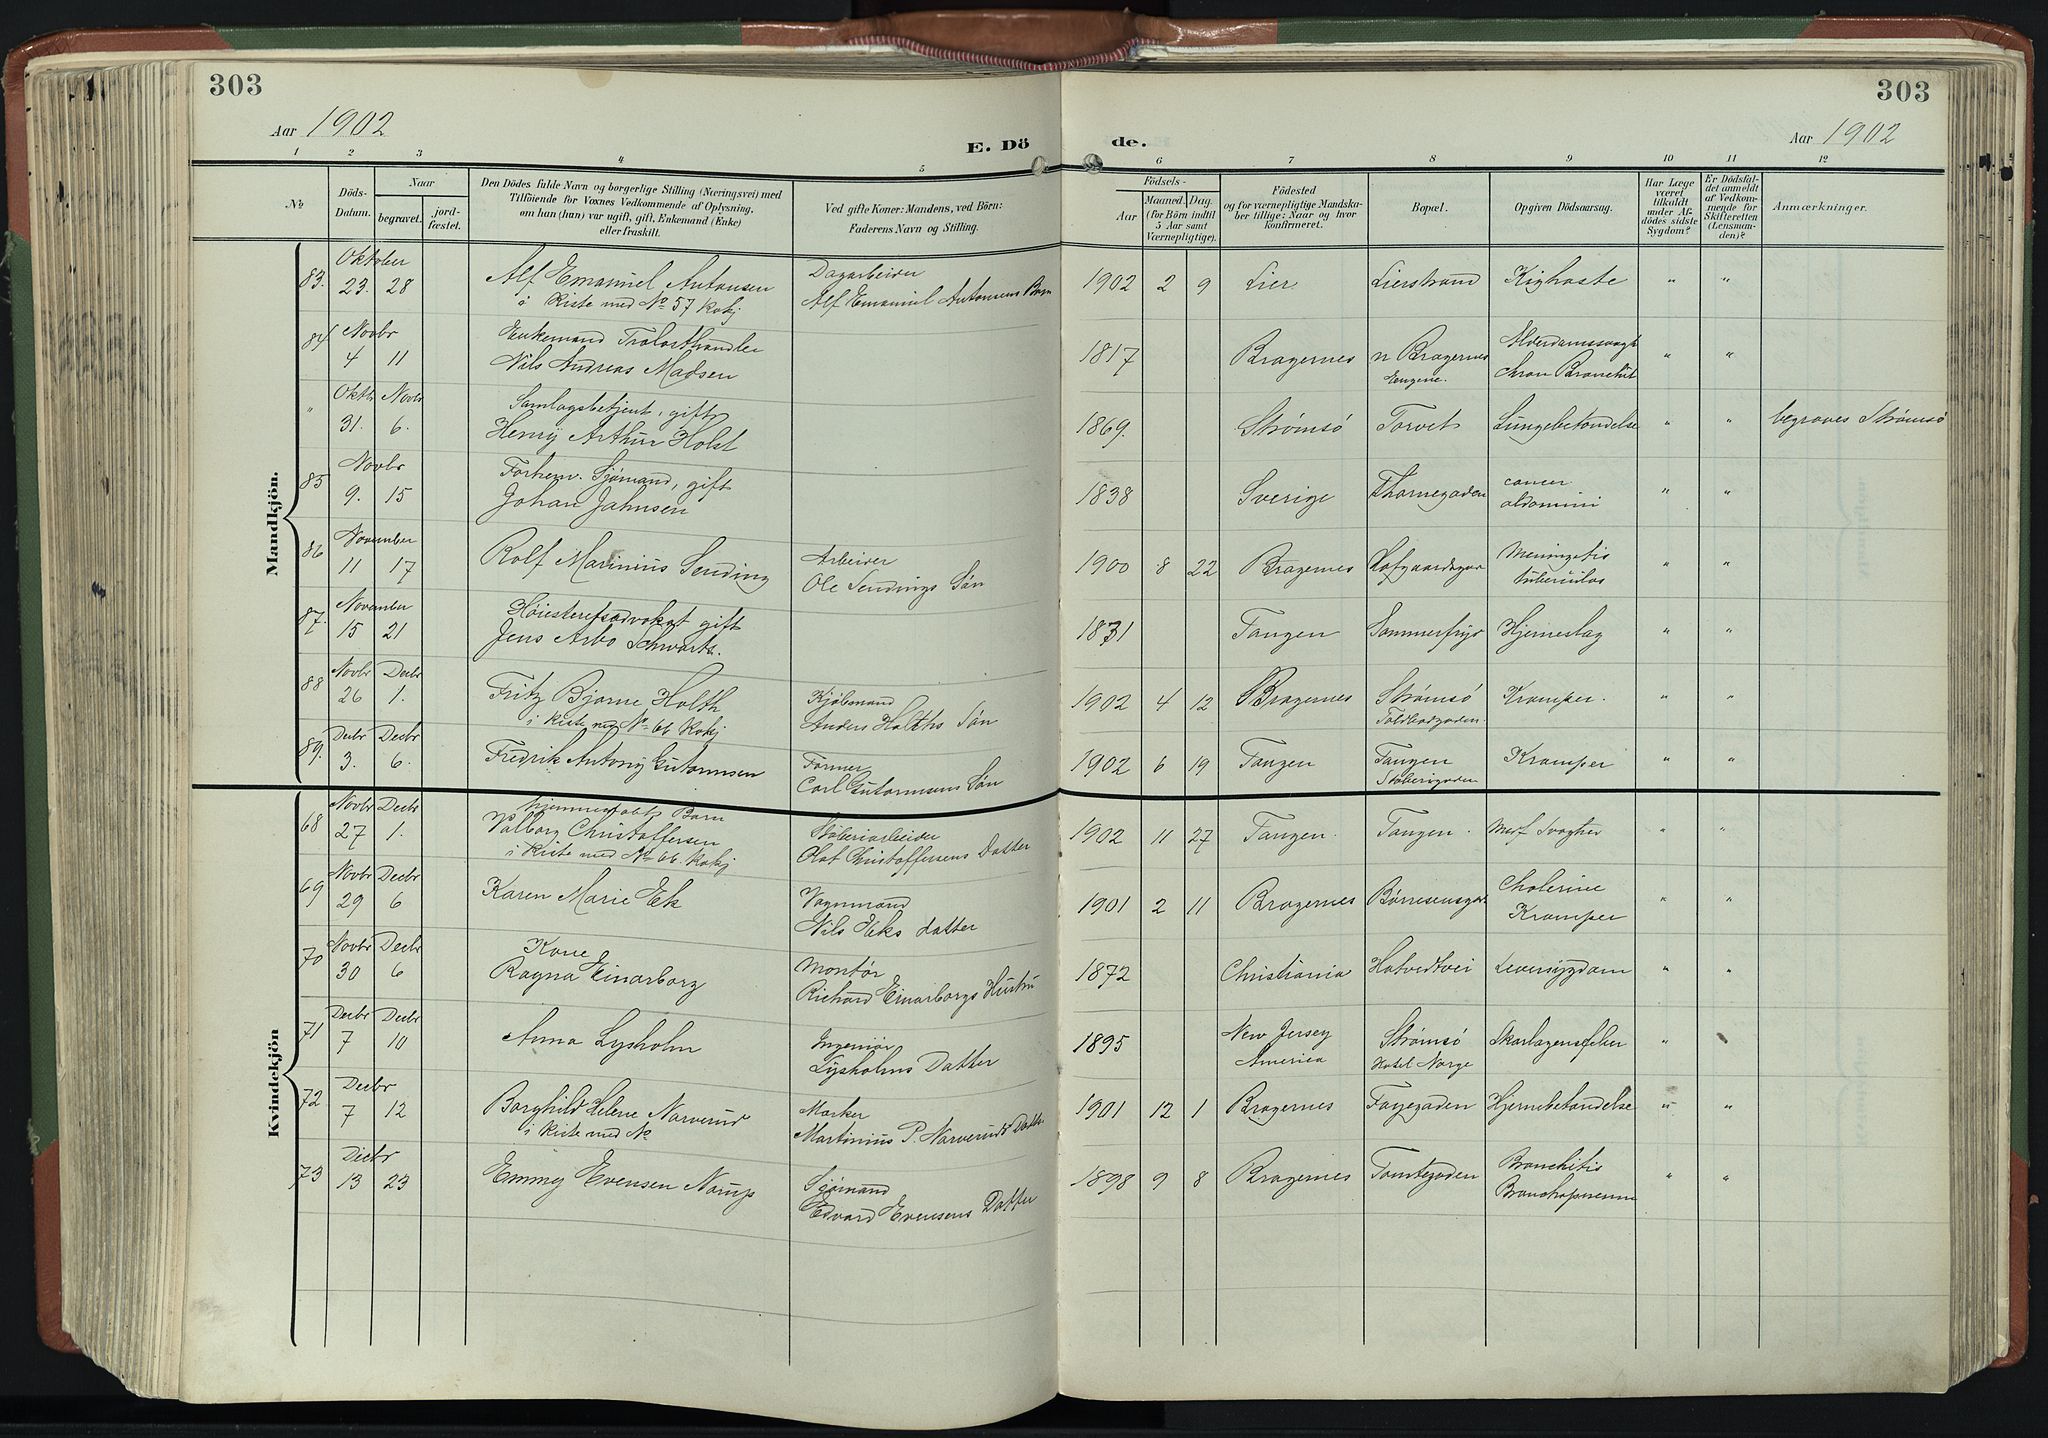 303
303
Aar 1902
E. Dö
de.
Aar 1902
1 2 3 4 5 6 7 8 9 10 11 12
No
Döds-
Datum.
Naar
begravet.
jord-
fæstet.
Den Dödes fulde Navn og borgerlige Stilling (Næringsvei) med
Tilföiende for Voxnes Vedkommende af Oplysning,
om han (hun) var ugift, gift, Enkemand (Enke)
eller fraskilt.
Ved gifte Koner: Mandens, ved Börn:
Faderens Navn og Stilling.
Födsels-
Aar
Maaned. Dag.
(for Börn indtil
5 Aar samt
Værnepligtige).
Födested
og for værnepligtige Mandska-
ber tillige: Naar og hvor
konfirmeret.
Bopæl.
Opgiven Dödsaarsag.
Har Læge
været
tilkaldt
under Af-
dödes sidste
Sygdom?
Er Dödsfal-
det anmeldt
af Vedkom-
mende for
Skifteretten
(Lensman-
den)?
Anmærkninger.
Mandkjön.
83. Oktober
23. 28 Alf Emanuel Antonsen
i Kiste med No 57 Kvkj
Dagarbeider
Alf Emanuel Antonsens Barn
1902 2 9 Lier Lierstrand Kighoste " "
84 Novbr
4 11 Enkemand Trælasthandler
Nils Andreas Madsen
1817 Bragernes n Bragernes
Engene.
Alderdomssvagh
chron Bronchit " "
" Oktbr Novbr
31. 6. Samlagsbetjent, gift
Henry Arthur Holst
1869. Strømsø Torvet Lungebetændelse " " begraves Strømsø
85 Novbr
9. 15 Forhenv. Sjømand, gift
Johan Jahnsen
1838 Sverige Thornegaden cancer
abdomini " "
86 November
11 17 Rolf Marinius Sending
Arbeider
Ole Sendings Søn
1900 8 22 Bragernes Hofgaardsgad Meningitis
tuberculos " "
87. November
15 21 Høiesteretsadvokat gift
Jens Arbo Schwartz.
1831 Tangen Sommerfryd Hjerneslag " "
88 Novbr Decbr
26 1. Fritz Bjarne Holth
i Kiste med No 66 Kvkj
Kjøbmand
Anders Holths Søn
1902 4 12 Bragernes Strømsø
Toldbodgaden.
Kramper. " "
89. Decbr Decbr
3. 6. Fredrik Antony Gutormsen
Former
Carl Gutormsens Søn
1902 6 19 Tangen Tangen
Støberigaden
Kramper " "
Kvindekjön
68 Novbr Decbr
27 1. hjemmedøbt Barn
Valborg Christoffersen
i Kiste med No 66 Kvkj
Støberiarbeider
Olaf Christoffersens Datter
1902 11 27 Tangen. Tangen. Medf Svaghed " "
69 Novbr Decbr
29 6 Karen Marie Ek
Vognmand
Nils Eks datter
1901 2 11 Bragernes Børresensgad Cholerine
Kramper " "
70 Novbr Decbr
30 6 Kone
Ragna Einarborg
Montør
Richard Einarborgs Hustru
1872 Christiania Hotvedtvei Leversygdom " "
71 Decbr Decbr
7 10 Anna Lysholm
Ingeniør
Lysholms Datter
1895 New Jersey
America
Strømsø
Hotel Norge
Skarlagensfeber "
72 Decbr
7 12 Borghild Helene Narverud
i Kiste med No
Marker
Martinius P. Narveruds Datter
1901 12 1 Bragernes Fayegaden Hjernebetændelse " "
73 Decbr
13 23 Emmy Evensen Norup
Sjømand
Edvard Evensens Datter
1898 9 8 Bragernes Tomtegaden Bronchitis
Bronchopneumo " "